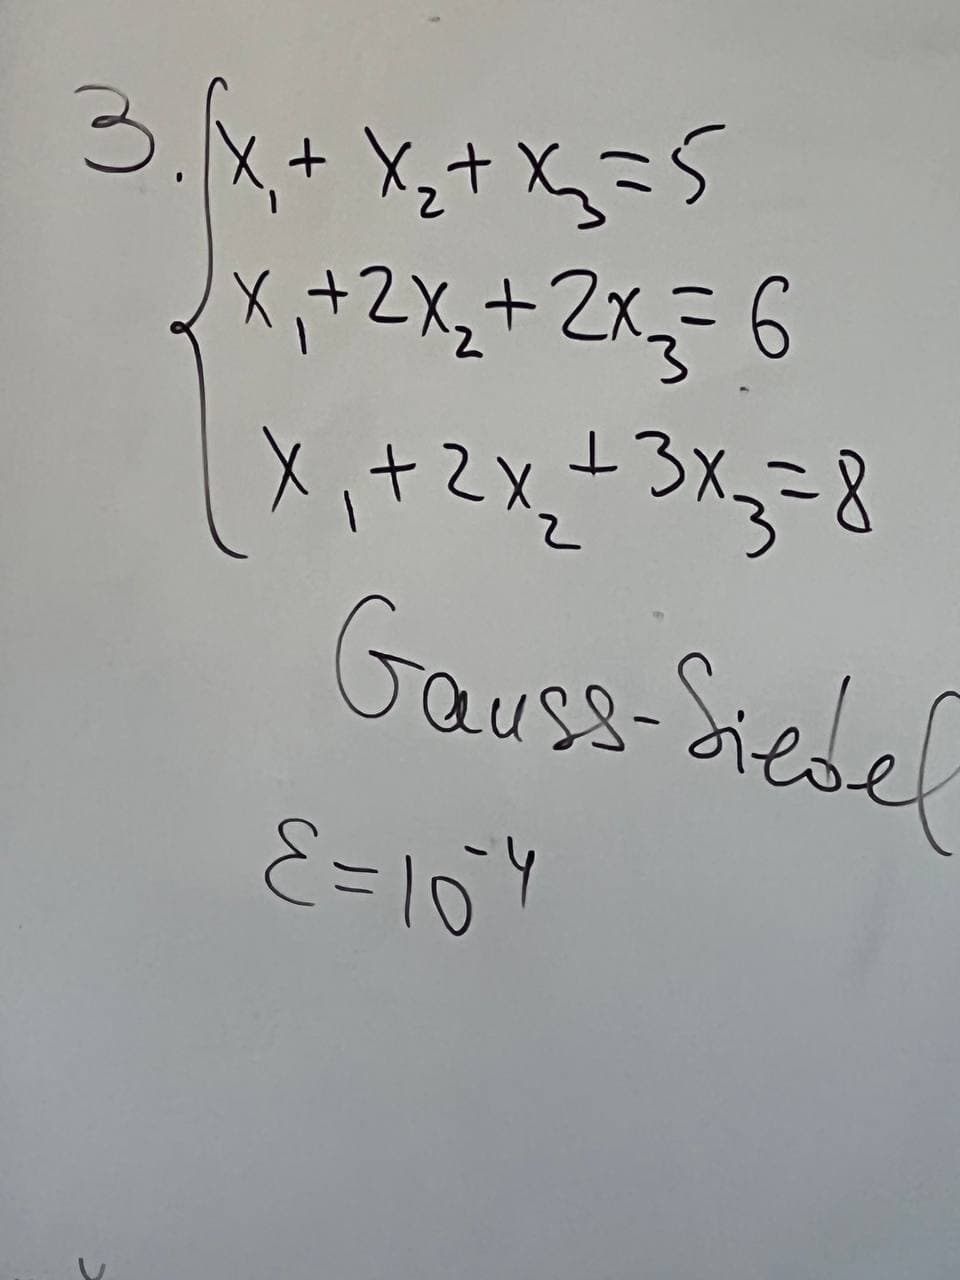 3. x₁ + x₂ + x₃ = 5
x₁ + 2x₂ + 2x₃ = 6
x₁ + 2x₂ + 3x₃ = 8
Gauss-Siedel
ε = 10⁻⁴